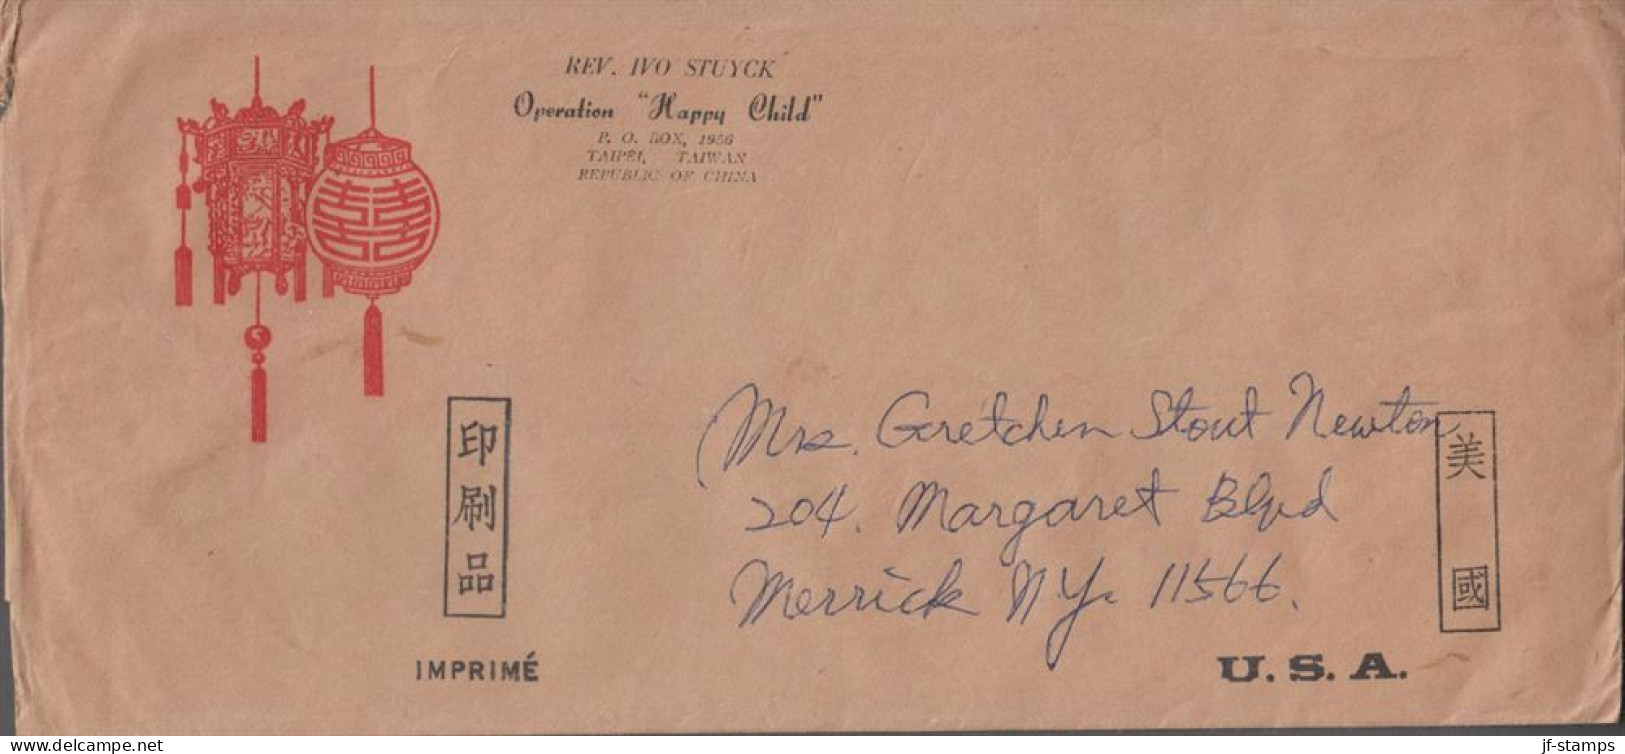 REV. IVO STUYCK
Operation "Happy Child"
P. O. BOX, 1956
TAIPEI, TAIWAN
REPUBLIC OF CHINA
印刷品
IMPRIMÉ
Mrs. Gretchen Stout Newton
204. Margaret Blvd
Merrick N.Y. 11566.
美國
U. S. A.
jf-stamps
delcampe.net